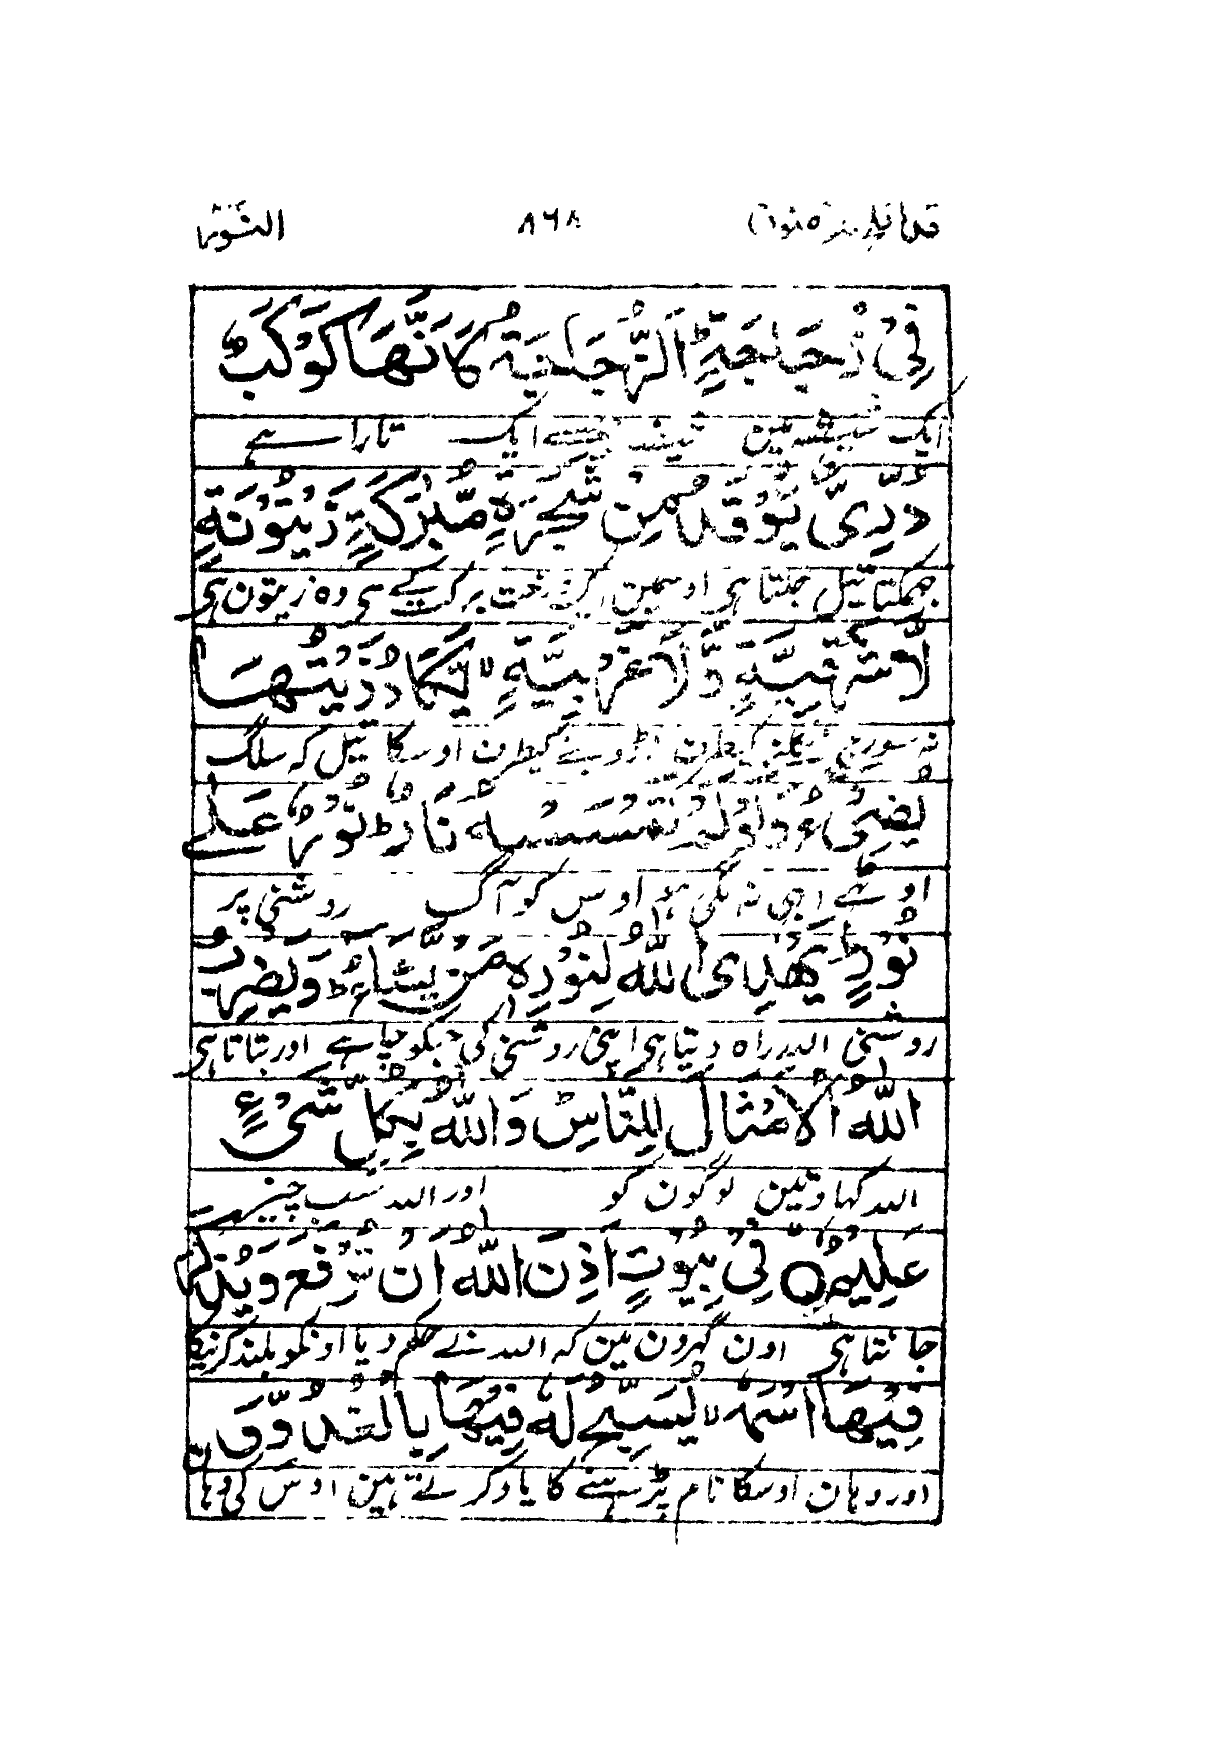 النُّور ٨٦٨
فِىْ زُجَاجَةٍ ؕ اَلزُّجَاجَةُ كَاَنَّهَا كَوْكَبٌ
ایک شیشہ مین شیشہ جیسے ایک تارا ہے
دُرِّىٌّ يُّوْقَدُ مِنْ شَجَرَةٍ مُّبٰرَكَةٍ زَيْتُوْنَةٍ
چمکتا تیل جلتا ہی اوسمین ایک درخت برکت کے سی وہ زیتون ہی
لَّا شَرْقِيَّةٍ وَّلَا غَرْبِيَّةٍ ۙ يَّكَادُ زَيْتُهَا
نہ سورج نکلنے کیطرف نہ ڈوبنے کیطرف اوسکا تیل کہ سلگ
يُضِىْٓءُ وَلَوْ لَمْ تَمْسَسْهُ نَارٌ ؕ نُوْرٌ عَلٰى
اوٹھے ابھی نہ لگی ہو اوس کو آگ روشنی پر
نُوْرٍ ؕ يَهْدِى اللّٰهُ لِنُوْرِهٖ مَنْ يَّشَآءُ ؕ وَيَضْرِبُ
روشنی اللہ راہ دیتا ہی اپنی روشنی کی جسکو چاہے اور بتاتا ہی
اللّٰهُ الْاَمْثَالَ لِلنَّاسِ ؕ وَاللّٰهُ بِكُلِّ شَىْءٍ
اللہ کہاوتین لوگون کو اور اللہ سب چیز
عَلِيْمٌ ۝ فِىْ بُيُوْتٍ اَذِنَ اللّٰهُ اَنْ تُرْفَعَ وَيُذْكَرَ
جانتا ہی اون گہرون مین کہ اللہ نے حکم دیا اونکو بلند کرنیکا
فِيْهَا اسْمُهٗ ۙ يُسَبِّحُ لَهٗ فِيْهَا بِالْغُدُوِّ وَ
اور وہان اوسکا نام پڑہنے کا یاد کرتے ہین اوس کی وہا